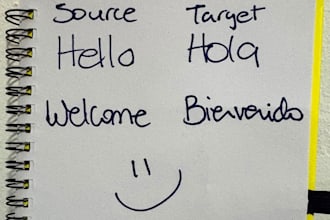 Source Target
Hello Hola
Welcome Bienvenido